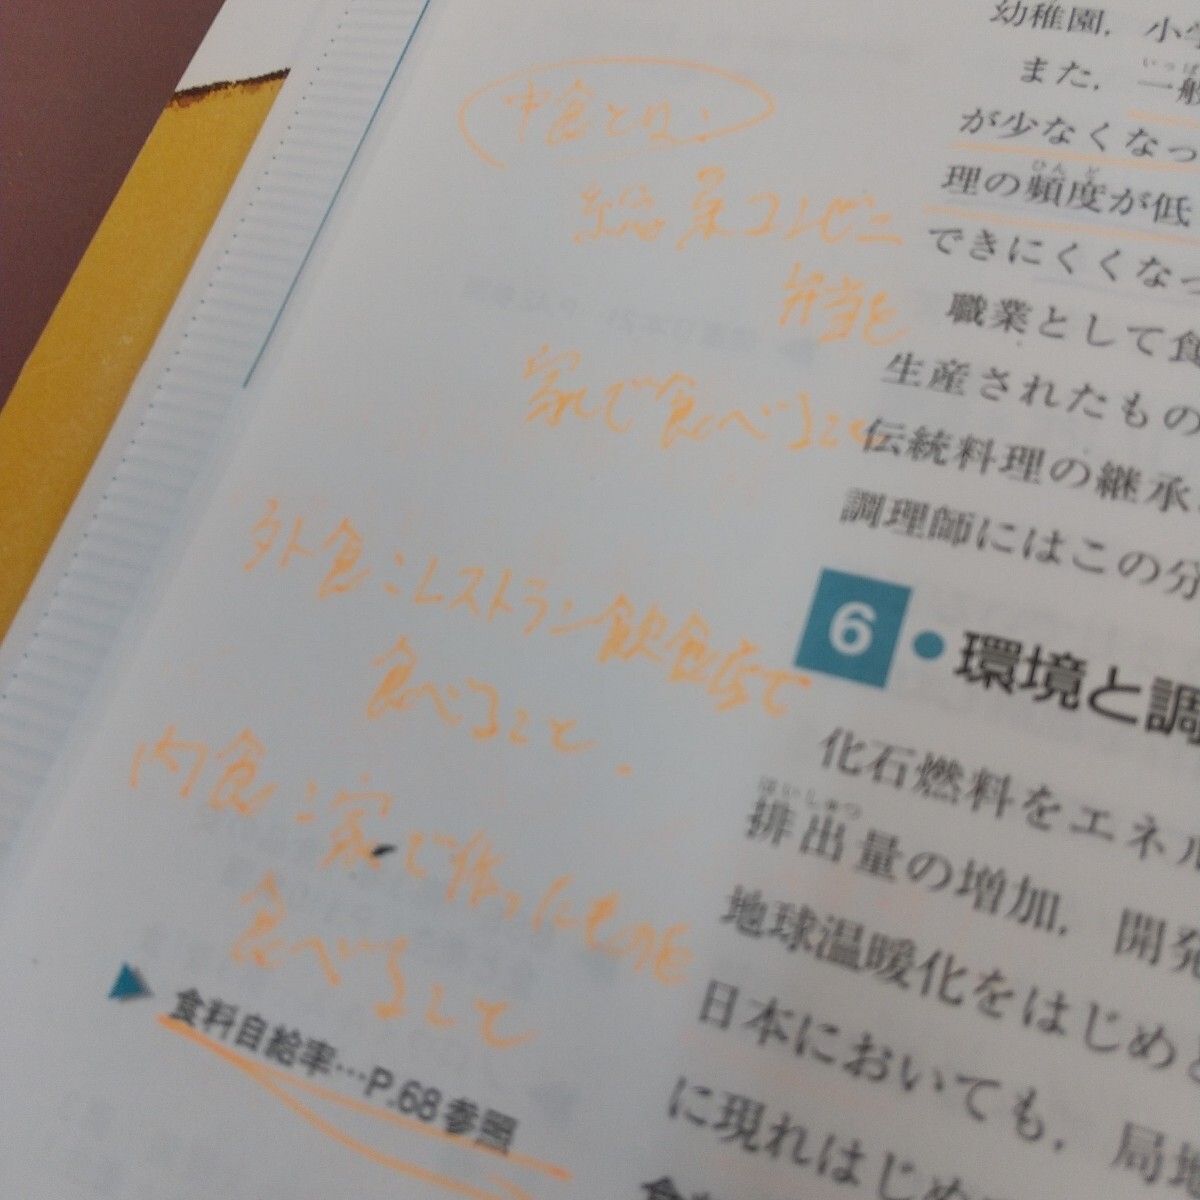 中食とは
総菜コンビニ
弁当を
家で食べること
外食:レストラン飲食店で
食べること.
内食:家で作ったものを
食べること
▶食料自給率…P.68参照
幼稚園,小学
また,一般
いっぱ
が少なくなっ
理の頻度が低
ひんど
できにくくなっ
職業として食
生産されたもの
伝統料理の継承
調理師にはこの分
6●環境と調
化石燃料をエネル
排出量の増加,開発
はいしゅつ
地球温暖化をはじめと
日本においても,局地
に現れはじめ